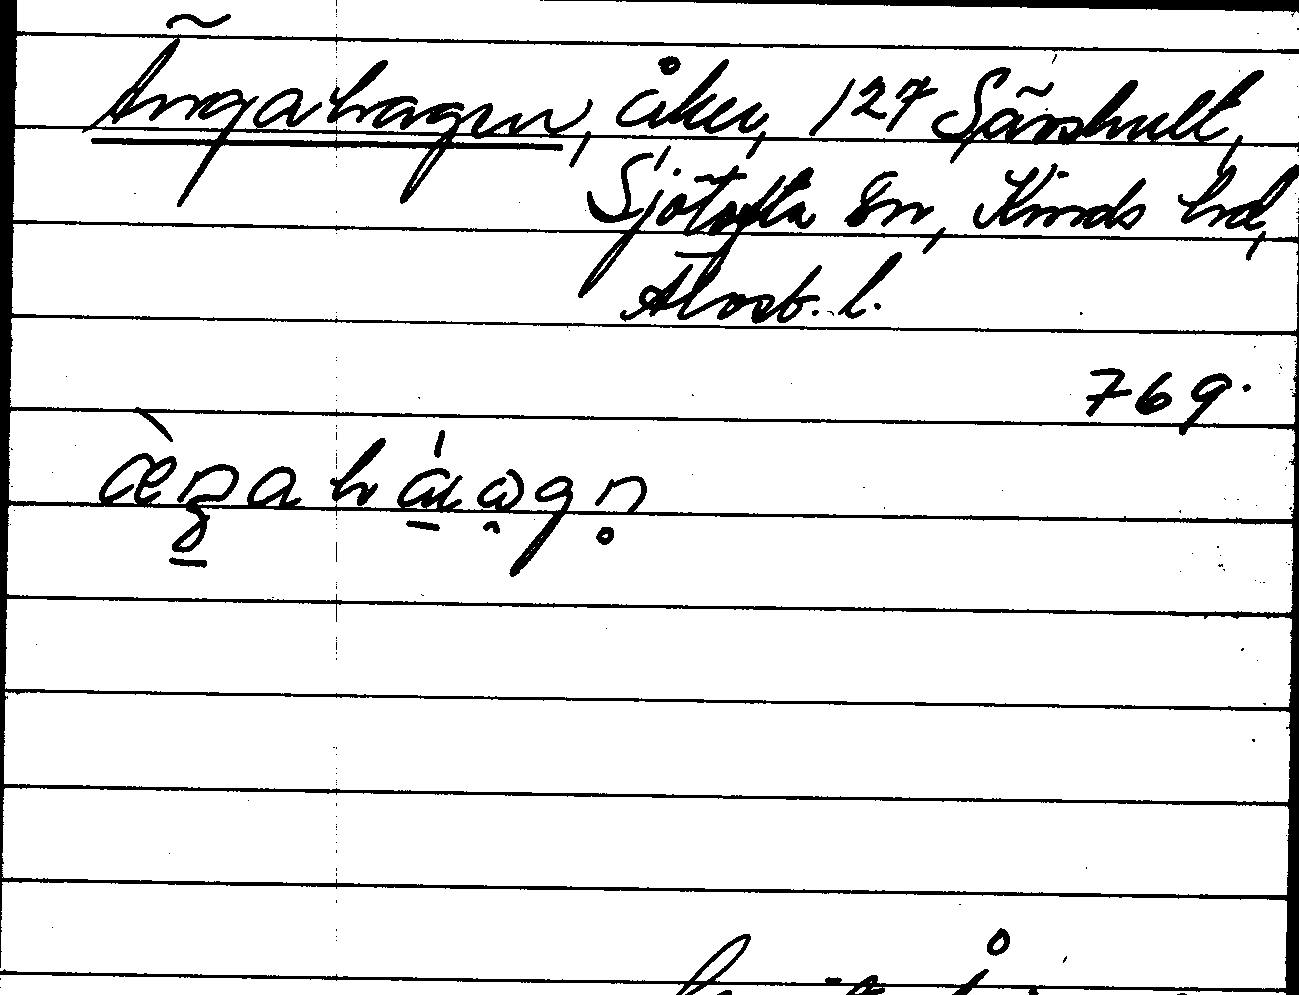 Ängahagen, åker, 127 Särshult,
Sjötofta Sn, Kinds hd,
Älvsb. l.
769.